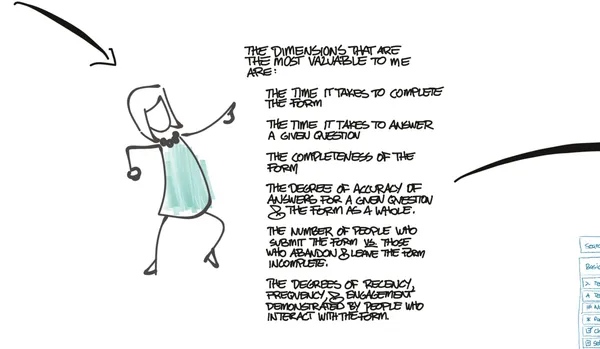 THE DIMENSIONS THAT ARE
THE MOST VALUABLE TO ME
ARE:
THE TIME IT TAKES TO COMPLETE
THE FORM
THE TIME IT TAKES TO ANSWER
A GIVEN QUESTION
THE COMPLETENESS OF THE
FORM
THE DEGREE OF ACCURACY OF
ANSWERS FOR A GIVEN QUESTION
& THE FORM AS A WHOLE.
THE NUMBER OF PEOPLE WHO
SUBMIT THE FORM VS. THOSE
WHO ABANDON & LEAVE THE FORM
INCOMPLETE.
THE DEGREES OF RECENCY,
FREQUENCY, & ENGAGEMENT
DEMONSTRATED BY PEOPLE WHO
INTERACT WITH THE FORM.